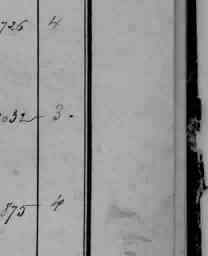 726 4
2032 3.
875 4